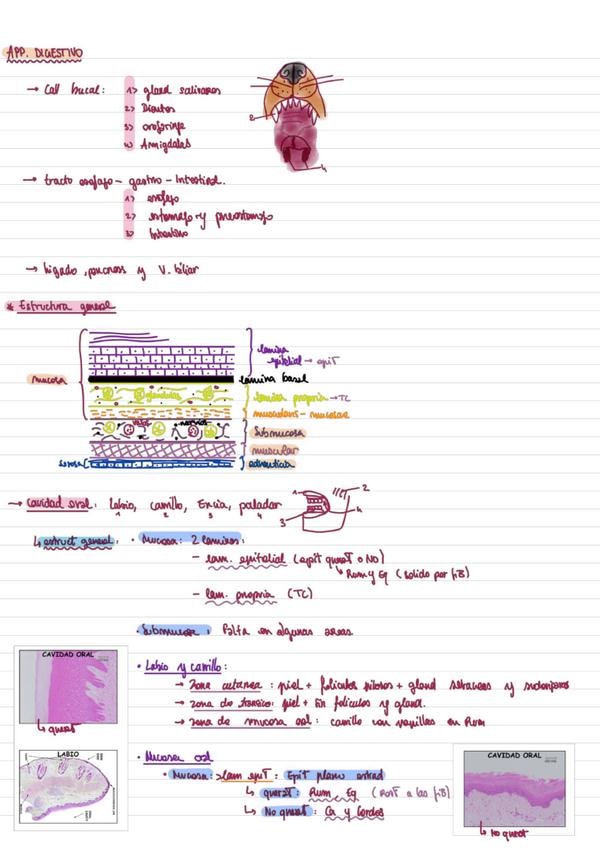 APP. DIGESTIVO
→ Cav bucal: 1> gland salivares
2> Dientes
3> orofaringe
4> Amígdalas
2
4
→ tracto esofago - gastro - Intestinal.
1> esofago
2> estomago y preestomago
3> Intestino
→ hígado, pancreas y V. biliar
* Estructura general
mucosa
lamina epitelial → epit
lamina basal
glandulas
lamina propria → TC
muscularis - mucosae
vasos nervios
Submucosa
muscular
serosa
adventicia
→ Cavidad oral: Labio, carrillo, Encia, paladar
1 2 3 4
1 2
3 4
↳ estruct general: • Mucosa: 2 laminas:
- lam. epitelial (epit querat o NO)
↳ Rum y Eq (solido por fB)
- lam. propria (TC)
• Submucosa: Falta en algunas areas.
CAVIDAD ORAL
↳ querat
• Labio y carrillo:
→ Zona cutanea: piel + foliculos pilosos + gland sebaceas y sudoriparas
→ zona de transicio: piel + sin foliculos y gland.
→ zona de mucosa oral: carrillo con papilas en Rum
LABIO
• Mucosa oral
• Mucosa: > lam epit: Epit plano estrat
↳ querat: Rum, Eq (rest a las fB)
↳ No querat: Ca y Cerdos
CAVIDAD ORAL
↳ No querat